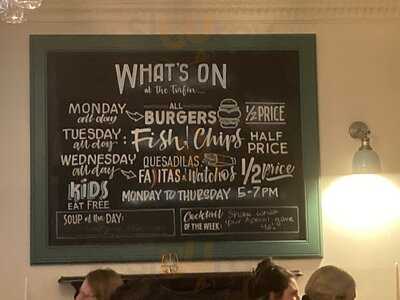 WHAT'S ON
at the Turfin....
MONDAY all day ALL BURGERS ½ PRICE
TUESDAY all day : Fish & Chips HALF PRICE
WEDNESDAY all day QUESADILAS FAJITAS & Nachos ½ price
KIDS EAT FREE MONDAY TO THURSDAY 5-7PM
SOUP of the DAY:
Cocktail OF THE WEEK: